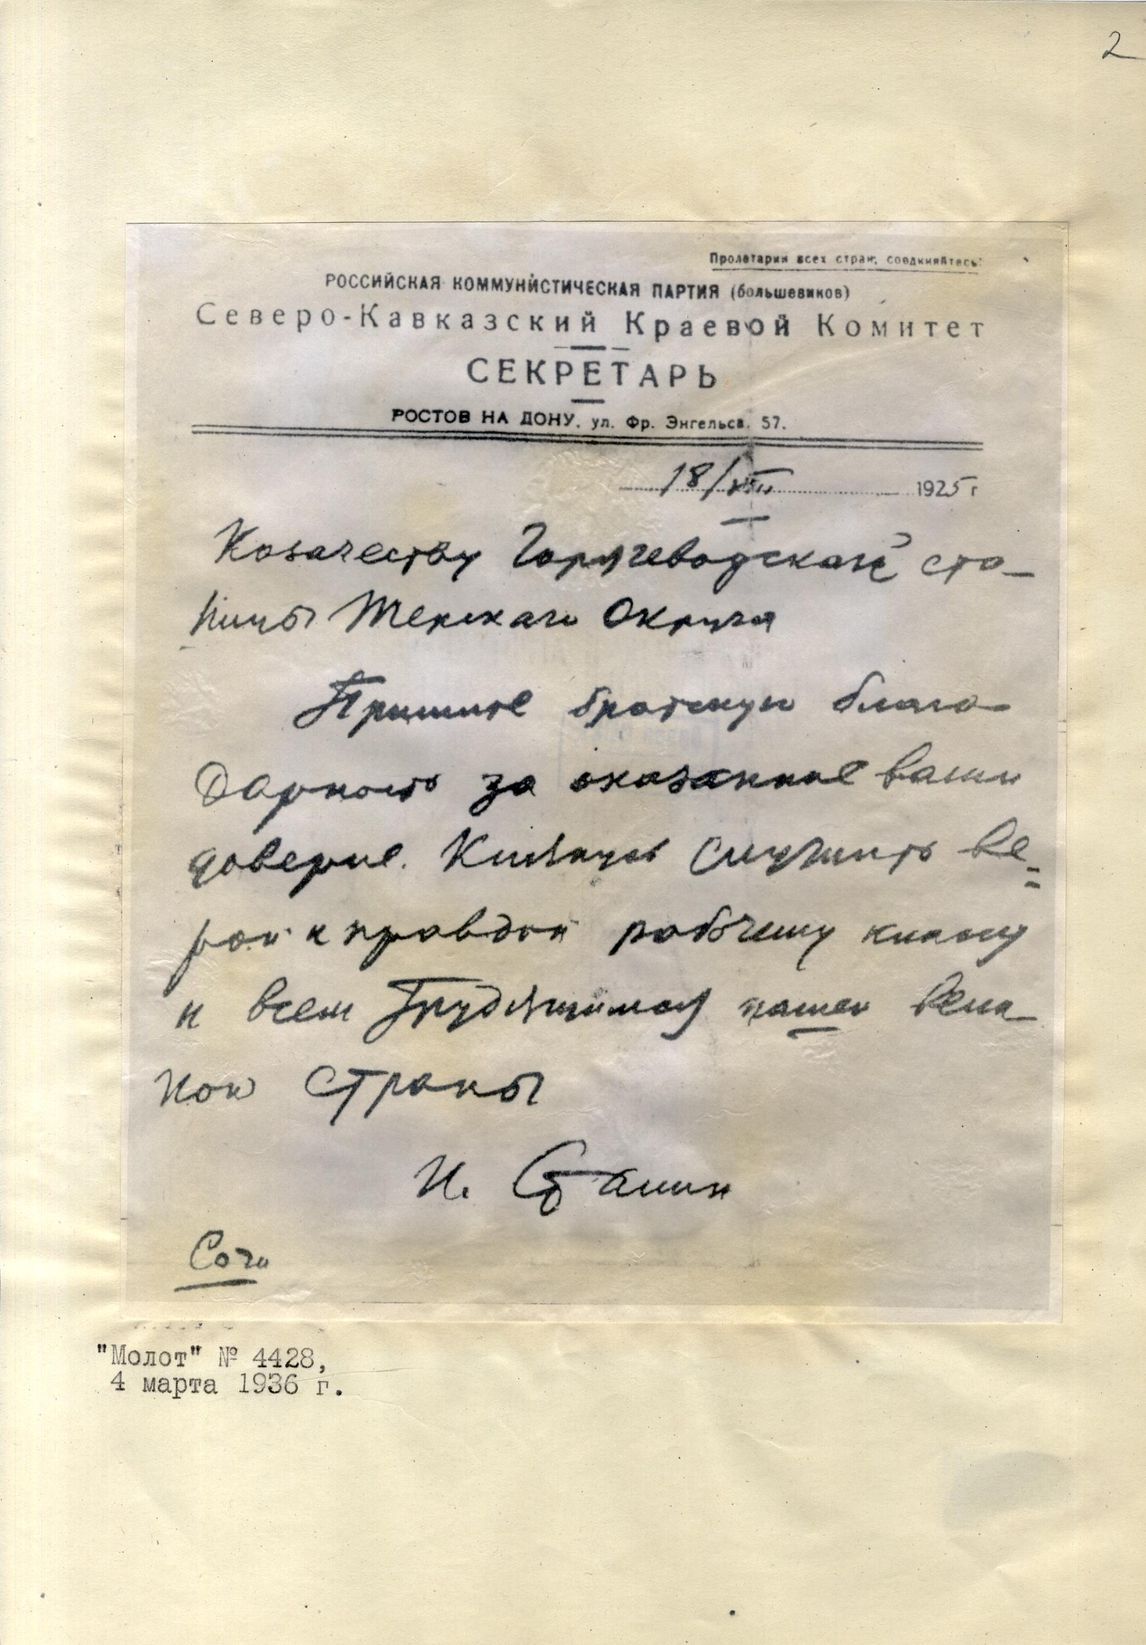 2
Пролетарии всех стран, соединяйтесь!
РОССИЙСКАЯ КОММУНИСТИЧЕСКАЯ ПАРТИЯ (большевиков)
Северо-Кавказский Краевой Комитет
СЕКРЕТАРЬ
РОСТОВ НА ДОНУ, ул. Фр. Энгельса, 57.
18/VIII 1925 г
Казачеству Горячеводской ста-
ницы Терского Округа
Примите братскую благо-
дарность за оказанное вами
доверие. Клянусь служить ве=
рой и правдой рабочему классу
и всем трудящимся нашей вели-
кой страны
И. Сталин
Сочи
"Молот" № 4428,
4 марта 1936 г.